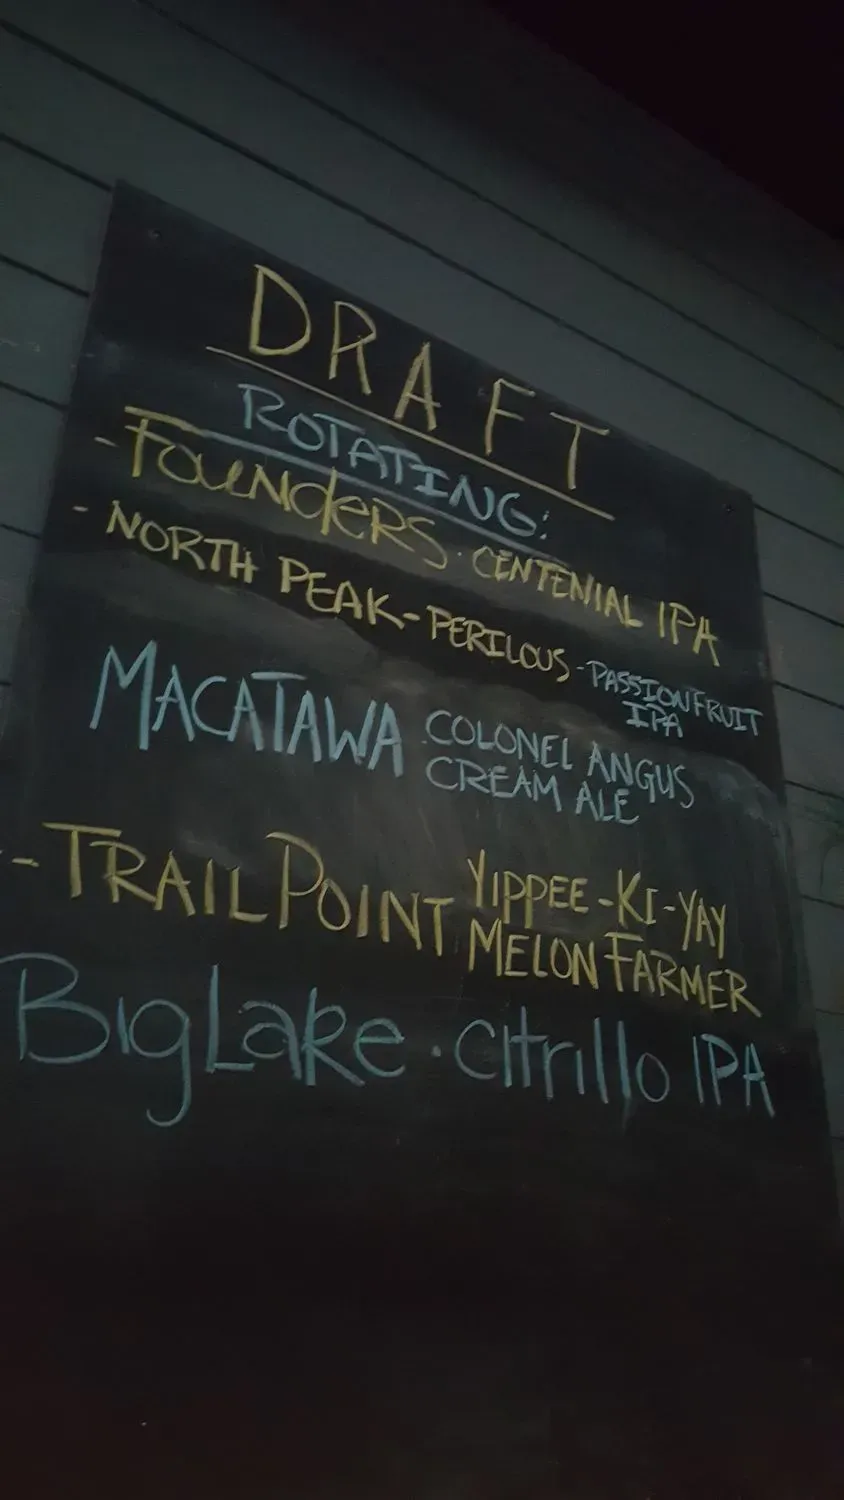 DRAFT
ROTATING:
- FOUNDERS · CENTENIAL IPA
- NORTH PEAK - PERILOUS - PASSIONFRUIT
IPA
MACATAWA COLONEL ANGUS
CREAM ALE
- TRAIL POINT YIPPEE-KI-YAY
MELON FARMER
BigLake · Citrillo IPA